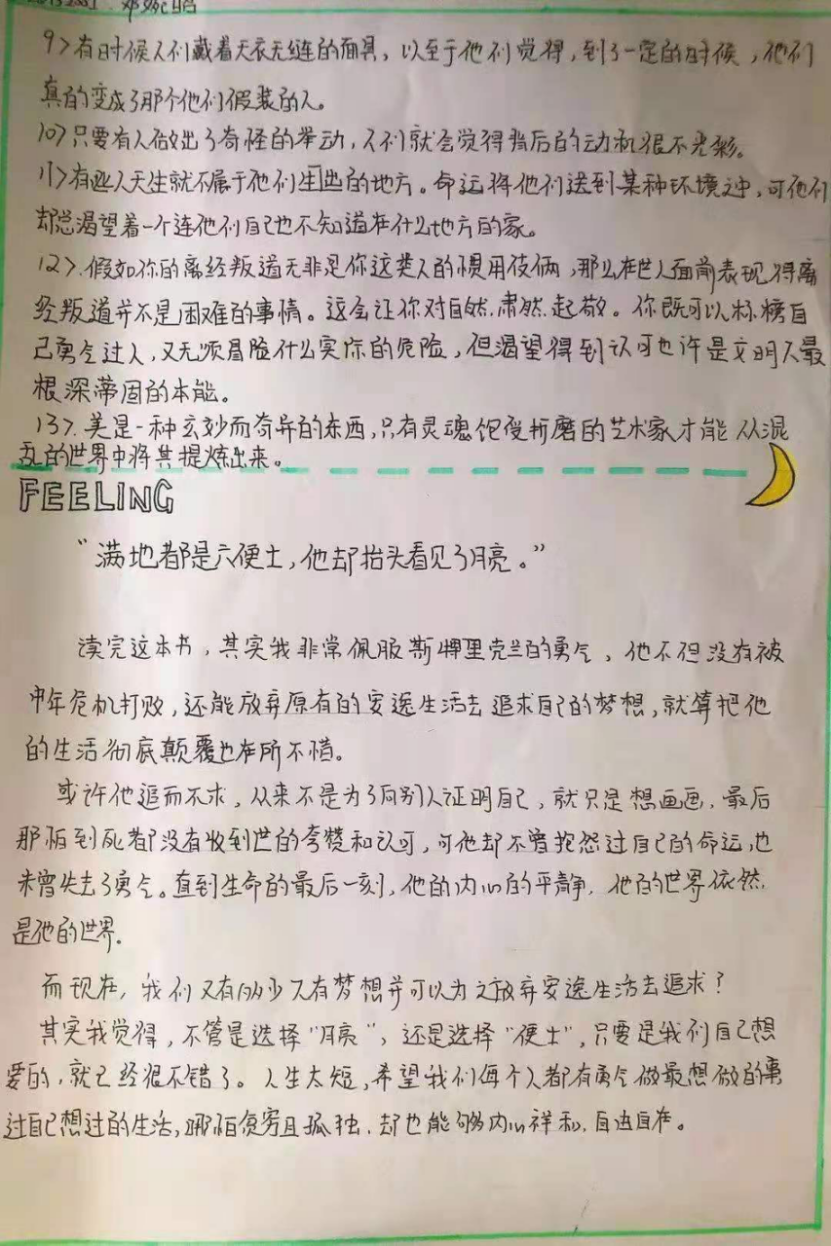 9>有时候人们戴着天衣无缝的面具，以至于他们觉得，到了一定的时候，他们
真的变成了那个他们假装的人。
10>只要有人做出了奇怪的举动，人们就会觉得背后的动机很不光彩。
11>有些人天生就不属于他们生的地方。命运将他们送到某种环境之中，可他们
却总渴望着一个连他们自己也不知道在什么地方的家。
12>.假如你的离经叛道无非是你这类人的惯用伎俩，那么在世人面前表现得离
经叛道并不是困难的事情。这会让你对自然.肃然.起敬。你既可以标榜自
己勇气过人，又无须冒险什么实际的危险，但渴望得到认可也许是文明人最
根深蒂固的本能。
13>.美是一种玄妙而奇异的东西，只有灵魂饱受折磨的艺术家才能从混
乱的世界中将其提炼出来。
FEELING
“满地都是六便士，他却抬头看见了月亮。”
读完这本书，其实我非常佩服斯特里克兰的勇气，他不但没有被
中年危机打败，还能放弃原有的安逸生活去追求自己的梦想，就算把他
的生活彻底颠覆也在所不惜。
或许他追而不求，从来不是为了向别人证明自己，就只是想画画，最后
那怕到死都没有收到世的夸赞和认可，可他却不曾抱怨过自己的命运，也
未曾失去了勇气。直到生命的最后一刻，他的内心的平静，他的世界依然.
是他的世界.
而现在，我们又有多少人有梦想并可以为之放弃安逸生活去追求？
其实我觉得，不管是选择“月亮”，还是选择“便士”，只要是我们自己想
要的，就已经很不错了。人生太短，希望我们每个人都有勇气做最想做的事
过自己想过的生活，哪怕贫穷且孤独.却也能够内心祥和，自由自在。